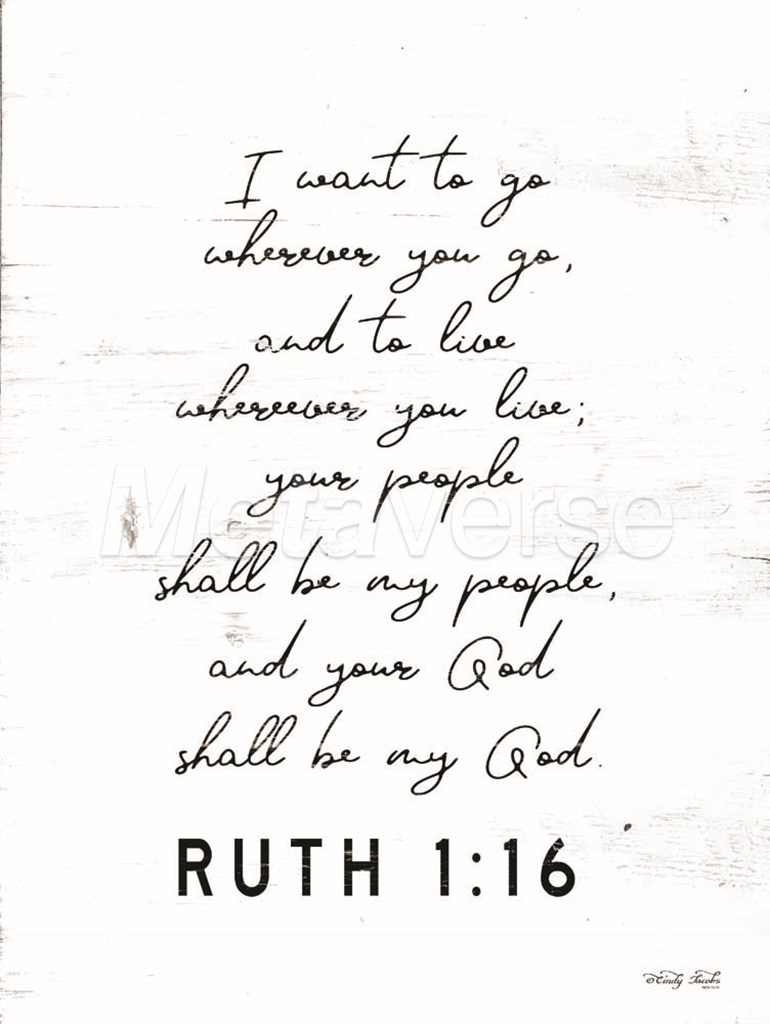 I want to go
wherever you go,
and to live
whereever you live;
your people
Metaverse
shall be my people,
and your God
shall be my God.
RUTH 1:16
©Cindy Jacobs